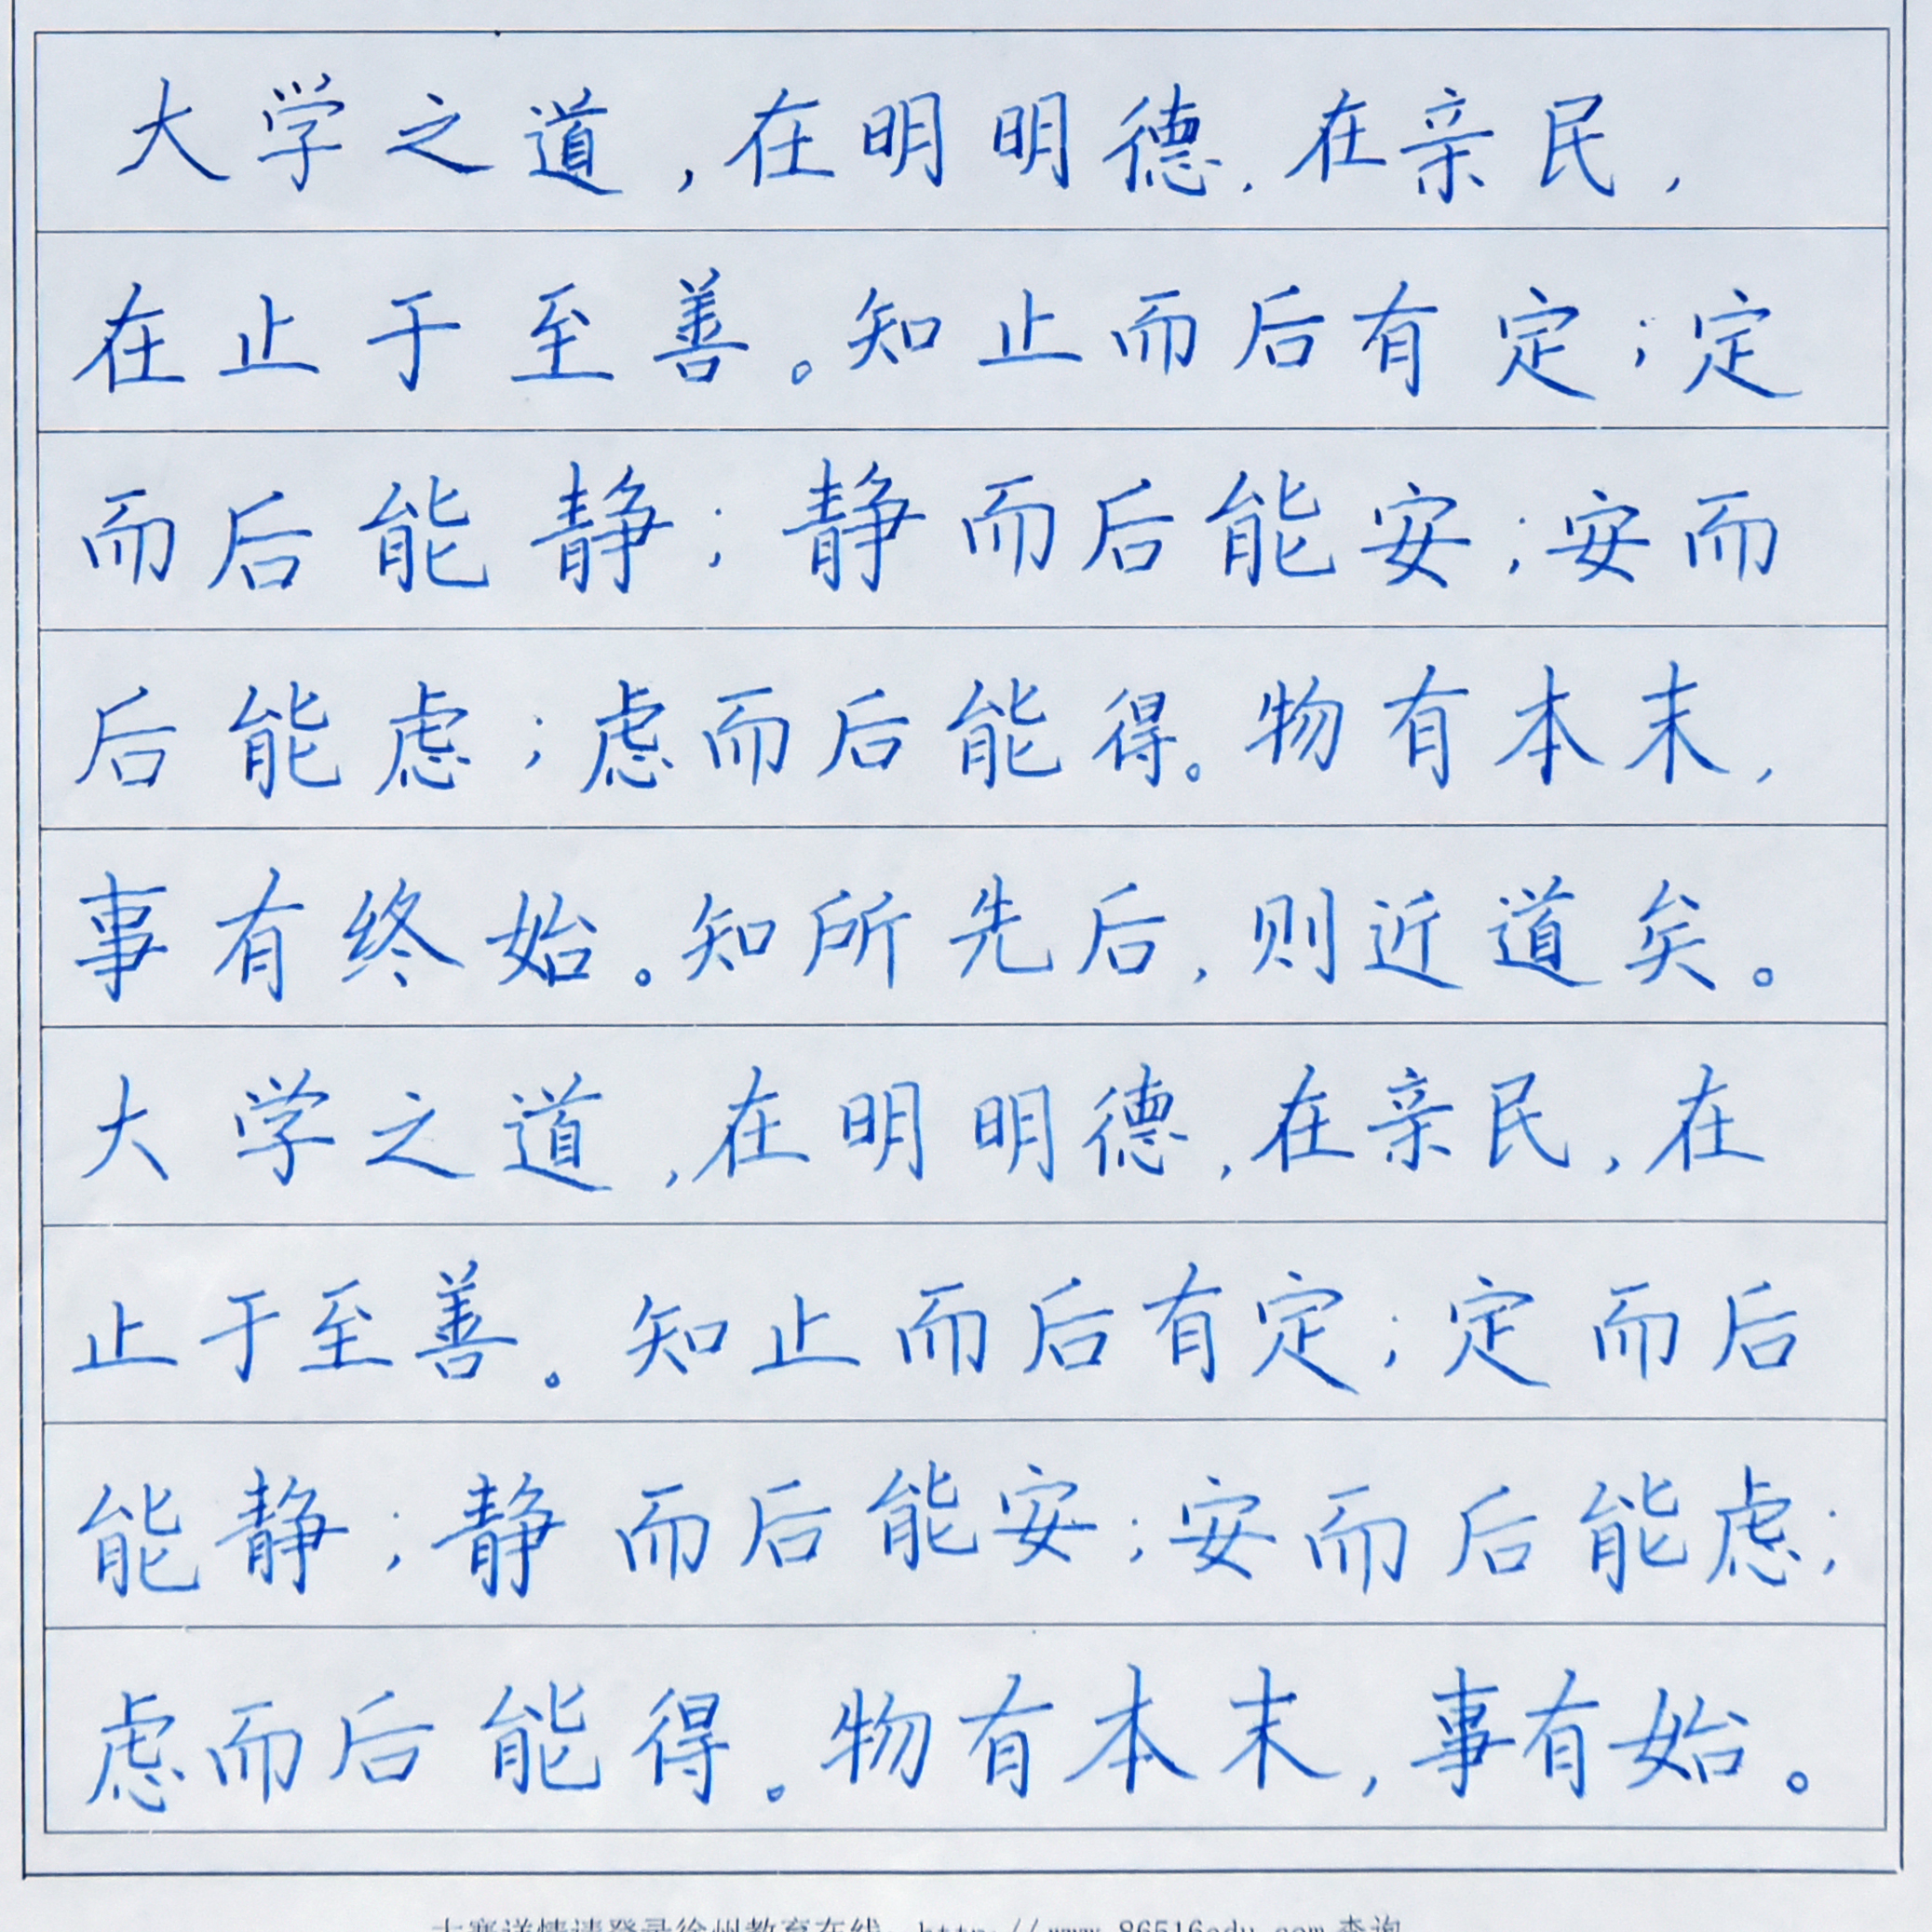 大学之道,在明明德,在亲民,
在止于至善。知止而后有定;定
而后能静;静而后能安;安而
后能虑;虑而后能得。物有本末,
事有终始。知所先后,则近道矣。
大学之道,在明明德,在亲民,在
止于至善。知止而后有定;定而后
能静;静而后能安;安而后能虑;
虑而后能得。物有本末,事有始。
大赛详情请登录徐州教育在线:http://www.86516edu.com查询